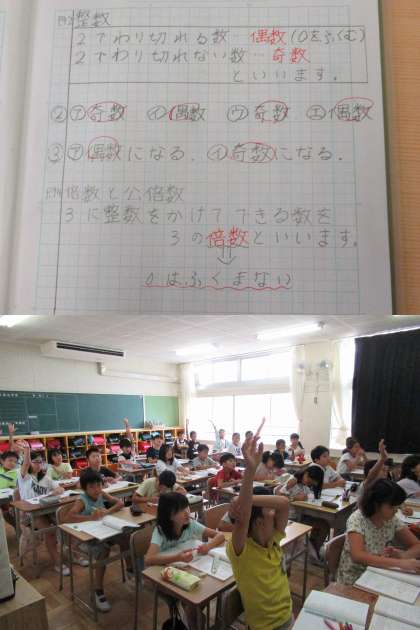 整数
2でわり切れる数…偶数(0をふくむ)
2でわり切れない数…奇数
といいます。
②㋐奇数 ㋑偶数 ㋒奇数 ㋓偶数
③㋐偶数になる。㋑奇数になる。
倍数と公倍数
3に整数をかけてできる数を
3の倍数といいます。
0はふくまない